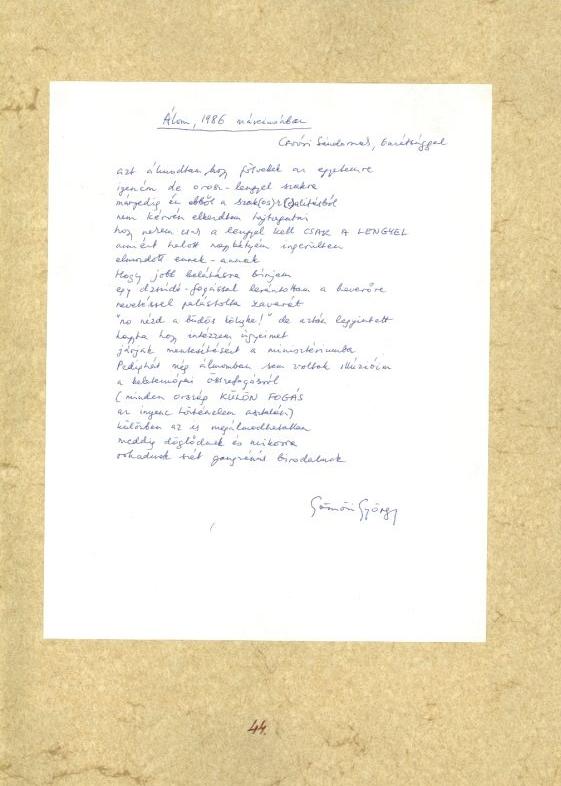 Álom, 1986 márciusában
Csoóri Sándornak, barátsággal
azt álmodtam hogy fölvettek az egyetemre
igencsak de orosz-lengyel szakra
márpedig én ebből a szak(os)í(t)alításból
nem kérvén elkezdtem hajtogatni
hogy nekem csak a lengyel kell CSAK A LENGYEL
amiért halott nagybátyám ingerülten
elmordott ennek-annak
Hogy jobb belátásra bírjam
egy dzsúdó-fogással lerántottam a heverőre
nevetéssel palástolta zavarát
"no nézd a büdös kölyke!" de aztán legyintett
hagyta hogy intézzem ügyeimet
járjak mentesítésért a minisztériumba
Pedighát még álmomban sem voltak illúzióim
a keleteurópai összefogásról
(minden ország KÜLÖN FOGÁS
az ínyenc történelem asztalán)
különben az is megálmodhatatlan
meddig döglődnek és mikorra
rohadnak szét gangrénás birodalmak
Gömöri György
44.